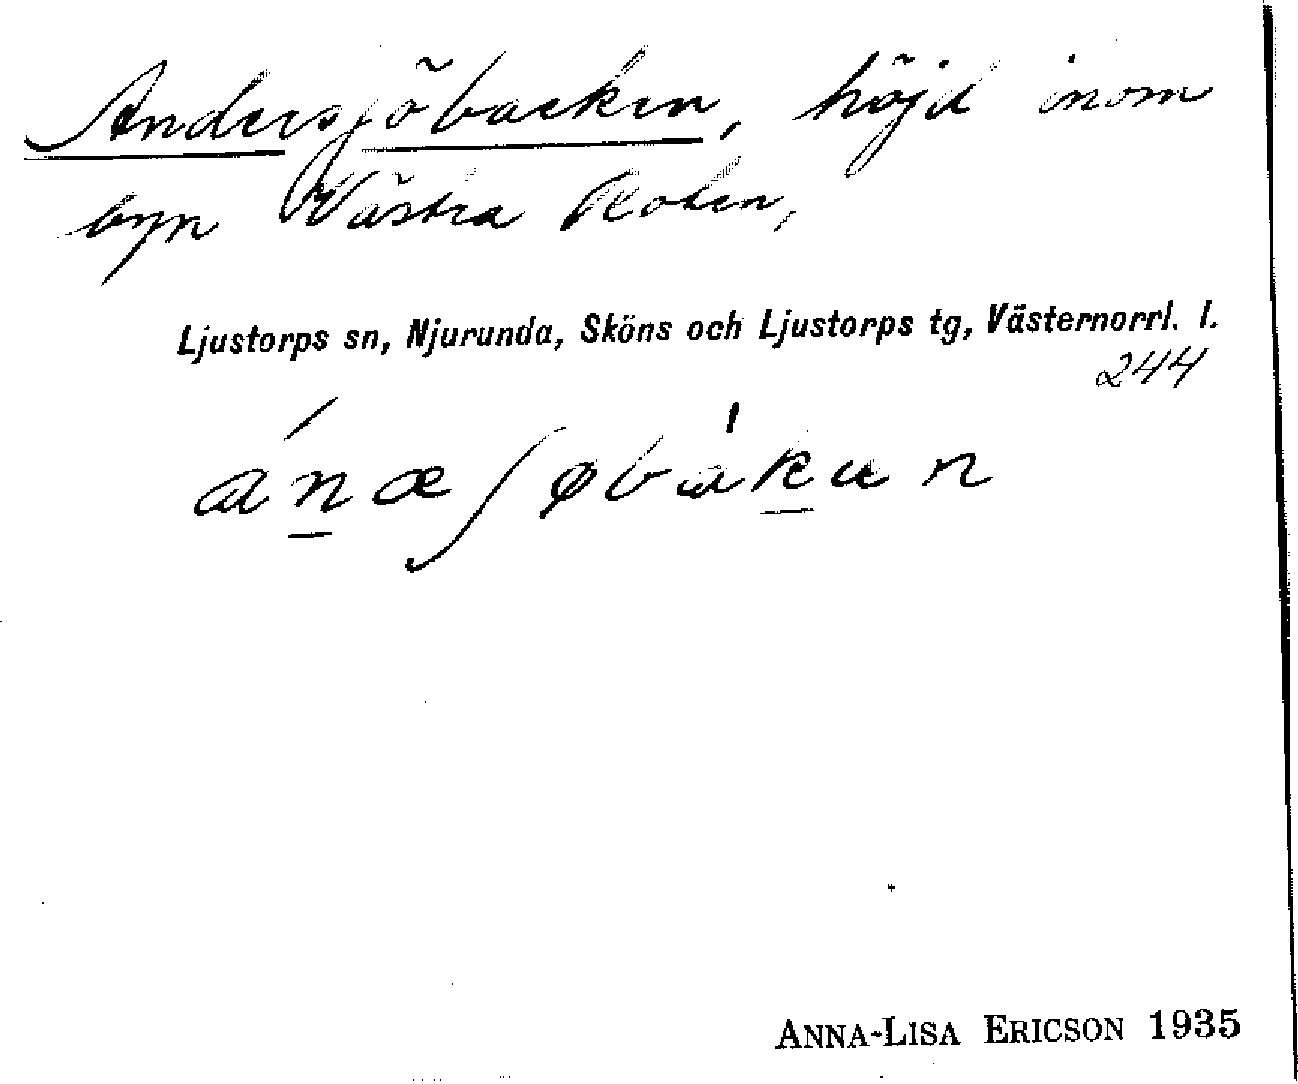 Andersjöbacken, höjd inom
byn Västra Roten,
Ljustorps sn, Njurunda, Sköns och Ljustorps tg, Västernorrl. l.
244
ánæʃøbàkαn
ANNA-LISA ERICSON 1935